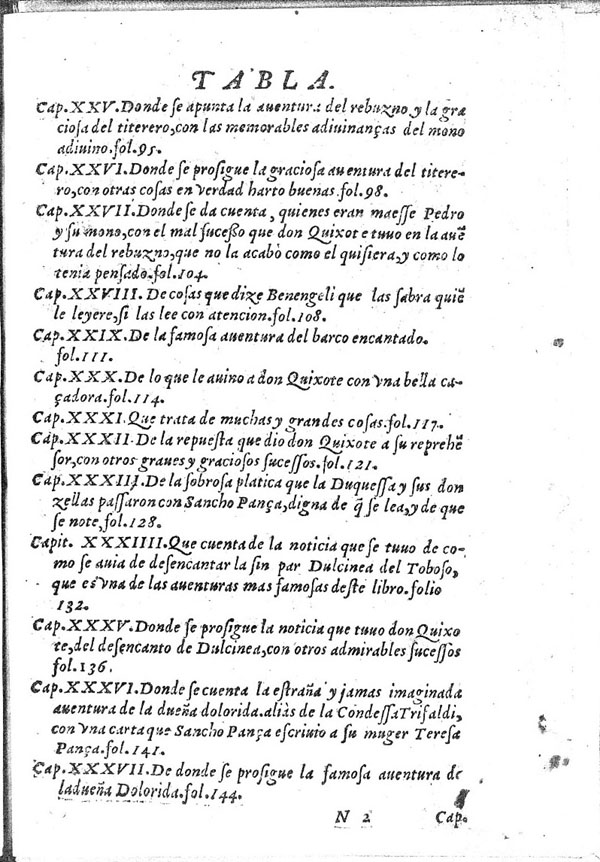 TABLA.
Cap.XXV.Donde se apunta la auentura del rebuzno, y la gra
ciosa del titerero, con las memorables adiuinanças del mono
adiuino.fol.95.
Cap.XXVI.Donde se prosigue la graciosa auentura del titere-
ro, con otras cosas en verdad harto buenas fol.98.
Cap.XXVII.Donde se da cuenta, quienes eran maesse Pedro
y su mono, con el mal sucesso que don Quixote tuuo en la auē
tura del rebuzno, que no la acabò como el quisiera, y como lo
tenia pensado.fol.104.
Cap.XXVIII. De cosas que dize Benengeli que las sabra quiē
le leyere, si las lee con atencion.fol.108.
Cap.XXIX.De la famosa auentura del barco encantado.
fol.111.
Cap.XXX.De lo que le auino a don Quixote con vna bella ca-
çadora.fol.114.
Cap.XXXI.Que trata de muchas y grandes cosas.fol.117.
Cap.XXXII.De la repuesta que dio don Quixote a su reprehē
sor, con otros graues y graciosos sucessos.fol.121.
Cap.XXXIII.De la sobrosa platica que la Duquessa y sus don
zellas passaron con Sancho Pança, digna de q̃ se lea, y de que
se note, fol.128.
Capit. XXXIIII.Que cuenta de la noticia que se tuuo de co-
mo se auia de desencantar la sin par Dulcinea del Toboso,
que es vna de las auenturas mas famosas deste libro.folio
132.
Cap.XXXV.Donde se prosigue la noticia que tuuo don Quixo
te, del desencanto de Dulcinea, con otros admirables sucessos
fol.136.
Cap.XXXVI.Donde se cuenta la estraña y jamas imaginada
auentura de la dueña dolorida.aliàs de la Condessa Trifaldi,
con vna carta que Sancho Pança escriuio a su muger Teresa
Pança.fol.141.
Cap.XXXVII.De donde se prosigue la famosa auentura de
la dueña Dolorida.fol.144.
N 2 Cap.